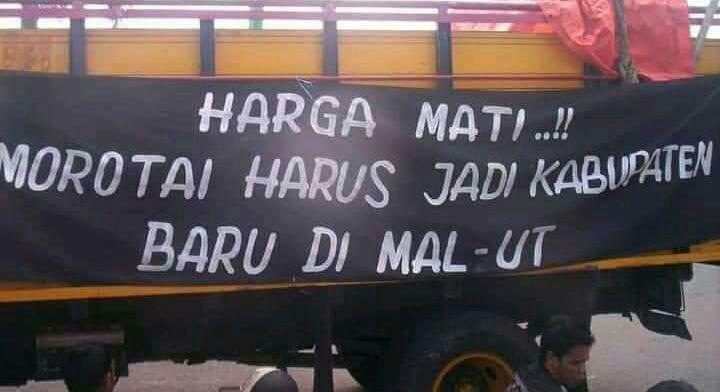 HARGA MATI..!!
MOROTAI HARUS JADI KABUPATEN
BARU DI MAL-UT